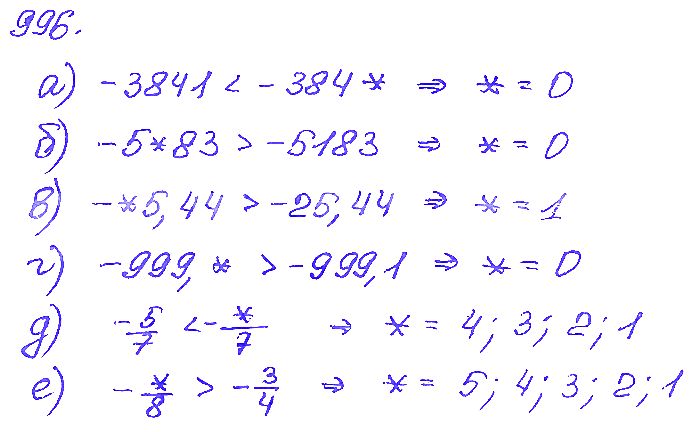 996.
а) -3841 < -384* ⇒ * = 0
б) -5*83 > -5183 ⇒ * = 0
в) -*5,44 > -25,44 ⇒ * = 1
г) -999,* > -999,1 ⇒ * = 0
д) -5/7 < -*/7 → * = 4; 3; 2; 1
е) -*/8 > -3/4 ⇒ * = 5; 4; 3; 2; 1